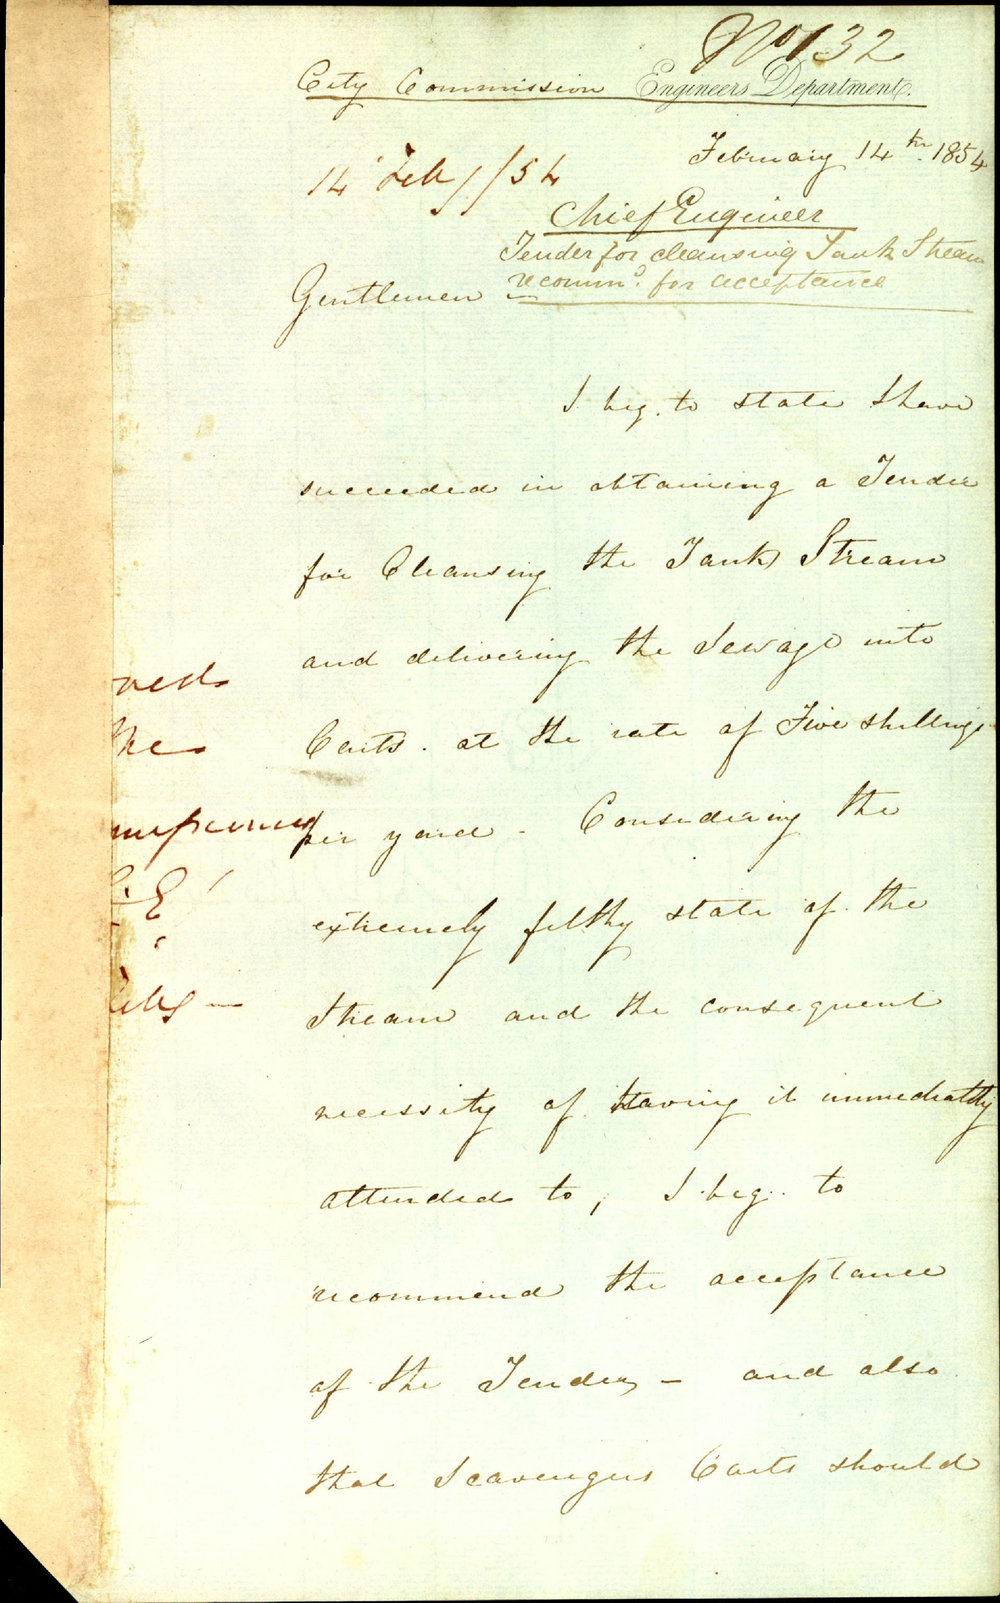 No 132
City Commission Engineers Department.
February 14th. 1854
14 Feby / 54
Chief Engineer
Tender for cleansing Tank Stream
recommd. for acceptance
Gentlemen
I beg. to state I have
succeeded in obtaining a Tender
for Cleansing the Tank Stream
and delivering the Sewage into
Carts. at the rate of Five shillings
per yard - Considering the
extremely filthy state of the
Stream and the consequent
necessity of Having it immediatly
attended to, I beg. to
recommend the acceptance
of the Tender, - and also
that Scavengers Carts should